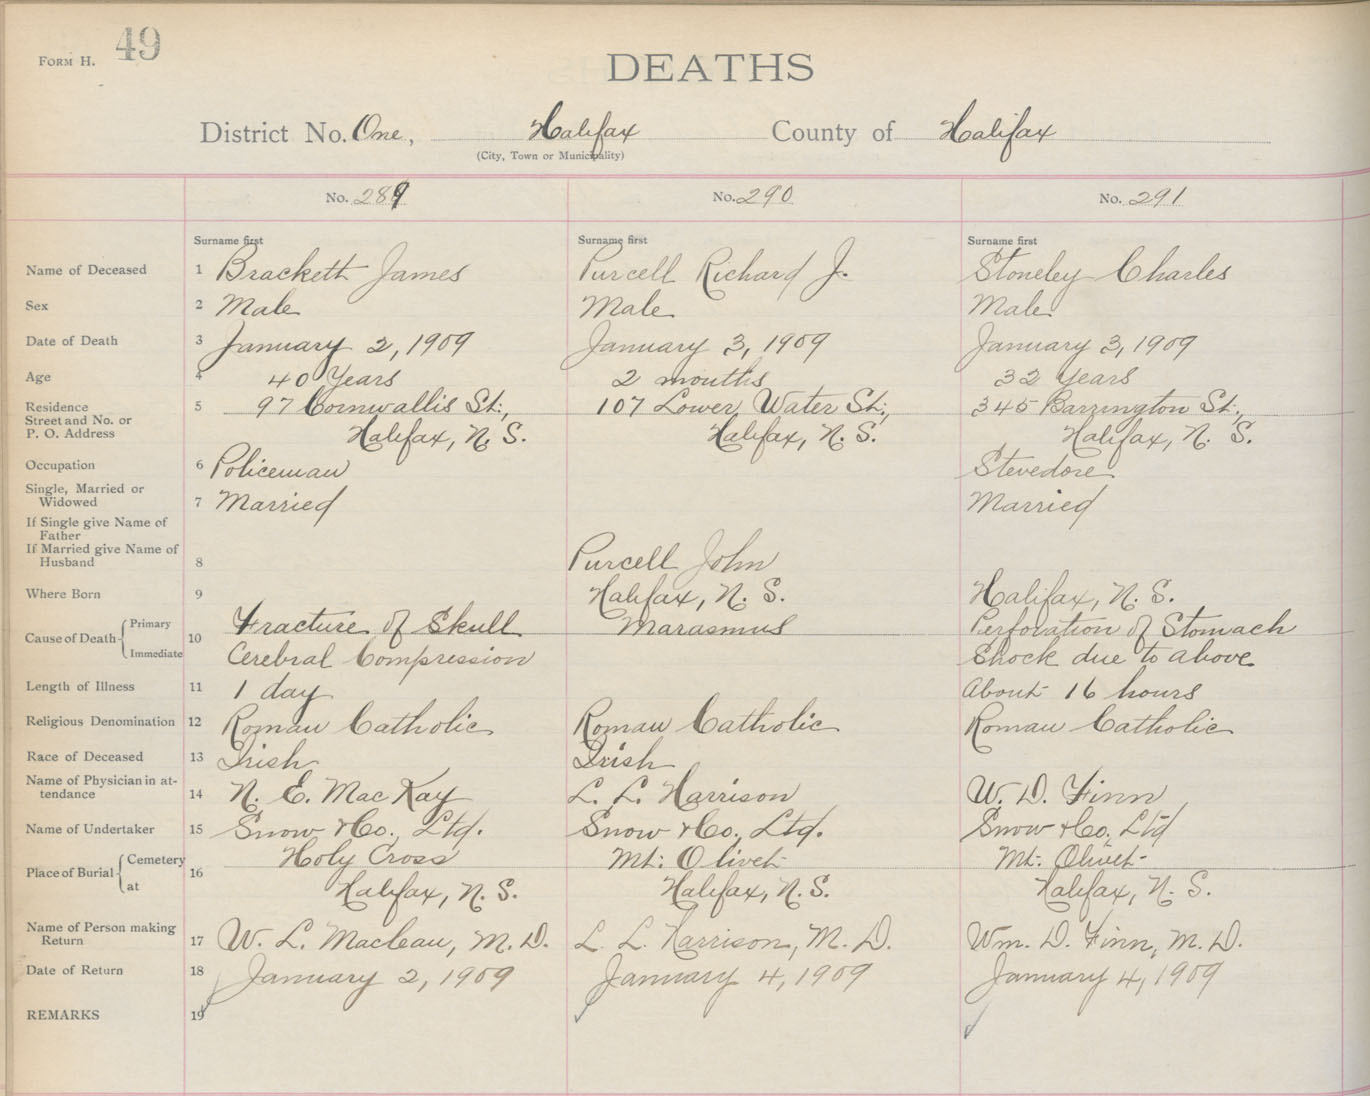 FORM H. 49
DEATHS
District No. One, Halifax County of Halifax
(City, Town or Municipality)
No. 289 No. 290 No. 291
Surname first Surname first Surname first
Name of Deceased 1 Brackett James Purcell Richard J. Stoneley Charles
Sex 2 Male Male Male
Date of Death 3 January 2, 1909 January 3, 1909 January 3, 1909
Age 4 40 Years 2 mouths 32 Years
Residence 5 97 Cornwallis St., 107 Lower Water St., 345 Barrington St.,
Street and No. or
P. O. Address Halifax, N. S. Halifax, N. S. Halifax, N. S.
Occupation 6 Policeman Stevedore
Single, Married or
Widowed 7 Married Married
If Single give Name of
Father
If Married give Name of
Husband 8 Purcell John
Where Born 9 Halifax, N. S. Halifax, N. S.
Cause of Death Primary 10 Fracture of Skull Marasmus Perforation of Stomach
Immediate Cerebral Compression Shock due to above
Length of Illness 11 1 day About 16 hours
Religious Denomination 12 Roman Catholic Roman Catholic Roman Catholic
Race of Deceased 13 Irish Irish
Name of Physician in at-
tendance 14 N. E. MacKay L. L. Harrison W. D. Finn
Name of Undertaker 15 Snow & Co., Ltd. Snow & Co., Ltd. Snow & Co. Ltd
Place of Burial Cemetery 16 Holy Cross Mt. Olivet Mt. Olivet
at Halifax, N. S. Halifax, N. S. Halifax, N. S.
Name of Person making
Return 17 W. L. Maclean, M. D. L. L. Harrison, M. D. Wm. D. Finn, M. D.
Date of Return 18 January 2, 1909 January 4, 1909 January 4, 1909
REMARKS 19